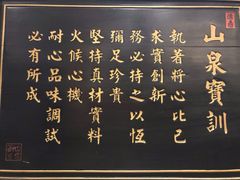 山泉寶訓
執著將心比己
求實創新
務必持之以恆
彌足珍貴
堅持真材實料
火候心機
耐心品味調試
必有所成